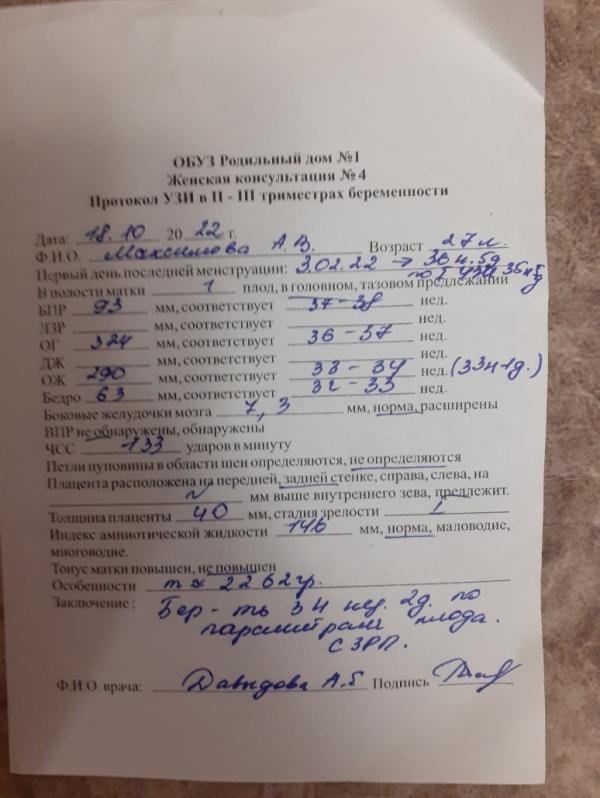 ОБУЗ Родильный дом №1
Женская консультация № 4
Протокол УЗИ в II - III триместрах беременности
Дата: 18.10 2022 г.
Ф.И.О. Максимова А.В. Возраст 27 л.
Первый день последней менструации: 3.02.22 → 36 н. 5д
по I УЗИ 35н5д
В полости матки 1 плод, в головном, тазовом предлежании
БПР 93 мм, соответствует 37-38 нед.
ЛЗР мм, соответствует нед.
ОГ 324 мм, соответствует 36-37 нед.
ДЖ мм, соответствует нед.
ОЖ 290 мм, соответствует 33-34 нед. (33н1д.)
Бедро 63 мм, соответствует 32-33 нед.
Боковые желудочки мозга 7,3 мм, норма, расширены
ВПР не обнаружены, обнаружены
ЧСС 133 ударов в минуту
Петли пуповины в области шеи определяются, не определяются
Плацента расположена на передней, задней стенке, справа, слева, на
N мм выше внутреннего зева, предлежит.
Толщина плаценты 40 мм, стадия зрелости I
Индекс амниотической жидкости 146 мм, норма, маловодие,
многоводие.
Тонус матки повышен, не повышен
Особенности m ≈ 2262гр.
Заключение: Бер-ть 34 нед. 2д. по
параметрам плода.
С ЗРП.
Ф.И.О. врача: Давыдова А.Б Подпись